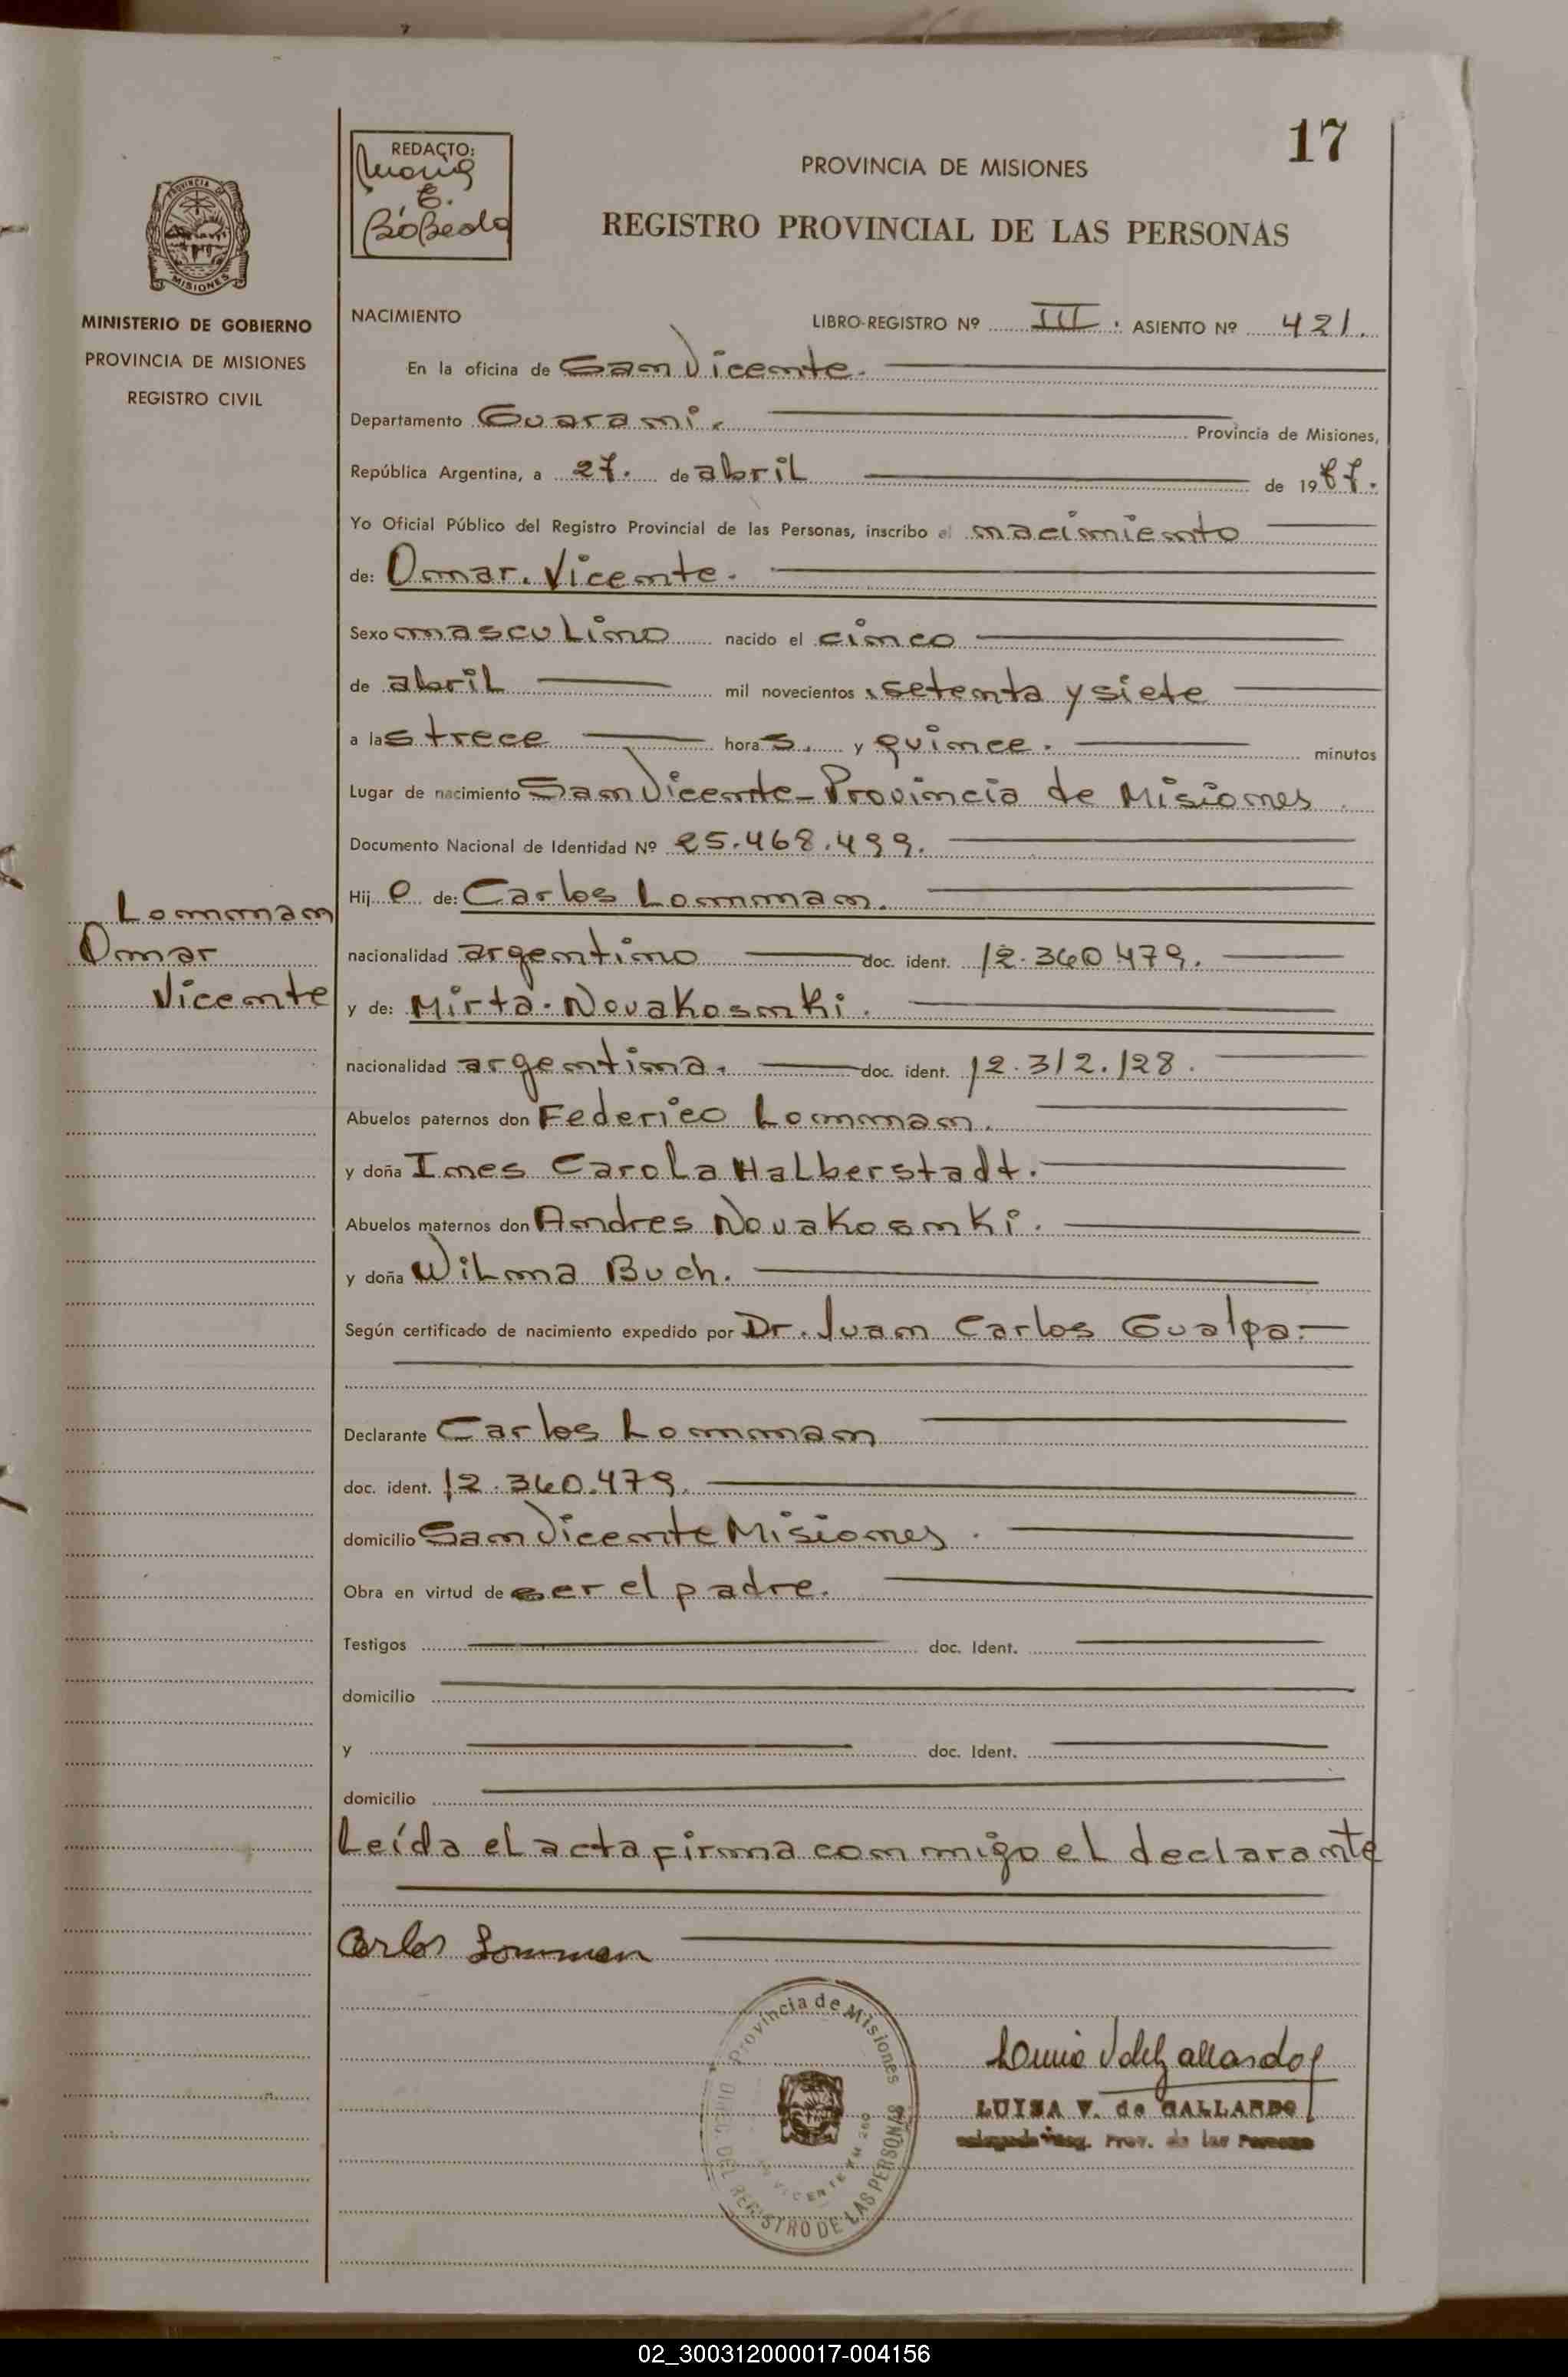 17
REDACTO:
Maria
E.
Bóbeda
PROVINCIA DE MISIONES
REGISTRO PROVINCIAL DE LAS PERSONAS
PROVINCIA DE
MISIONES
MINISTERIO DE GOBIERNO
PROVINCIA DE MISIONES
REGISTRO CIVIL
NACIMIENTO LIBRO-REGISTRO Nº III. ASIENTO Nº 421.
En la oficina de San Vicente.
Departamento Guarani. Provincia de Misiones,
República Argentina, a 27. de abril de 1987.
Yo Oficial Público del Registro Provincial de las Personas, inscribo el nacimiento
de: Omar. Vicente.
Sexo masculino nacido el cinco
de abril mil novecientos setenta y siete
a las trece horas. y quince. minutos
Lugar de nacimiento San Vicente - Provincia de Misiones.
Documento Nacional de Identidad Nº 25.468.499.
Hijo de: Carlos Lommam.
Lommam
Omar
Vicente
nacionalidad argentino doc. ident. 12.360479.
y de: Mirta. Novakosnki.
nacionalidad argentina. doc. ident. 12.312.128.
Abuelos paternos don Federico Lommam.
y doña Ines Carola Halberstadt.
Abuelos maternos don Andres Novakosnki.
y doña Wilma Buch.
Según certificado de nacimiento expedido por Dr. Juan Carlos Gualpa.
Declarante Carlos Lommam
doc. ident. 12.360.479.
domicilio San Vicente Misiones.
Obra en virtud de ser el padre.
Testigos doc. Ident.
domicilio
y doc. Ident.
domicilio
Leída el acta firma conmigo el declarante
Carlos Lomman
Provincia de Misiones
DIREC. DEL REGISTRO DE LAS PERSONAS
LUISA V. de GALLARDO
Reg. Prov. de las Personas
02_300312000017-004156